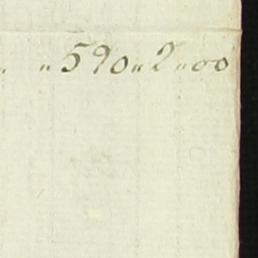 " " 590 " 2 " 00